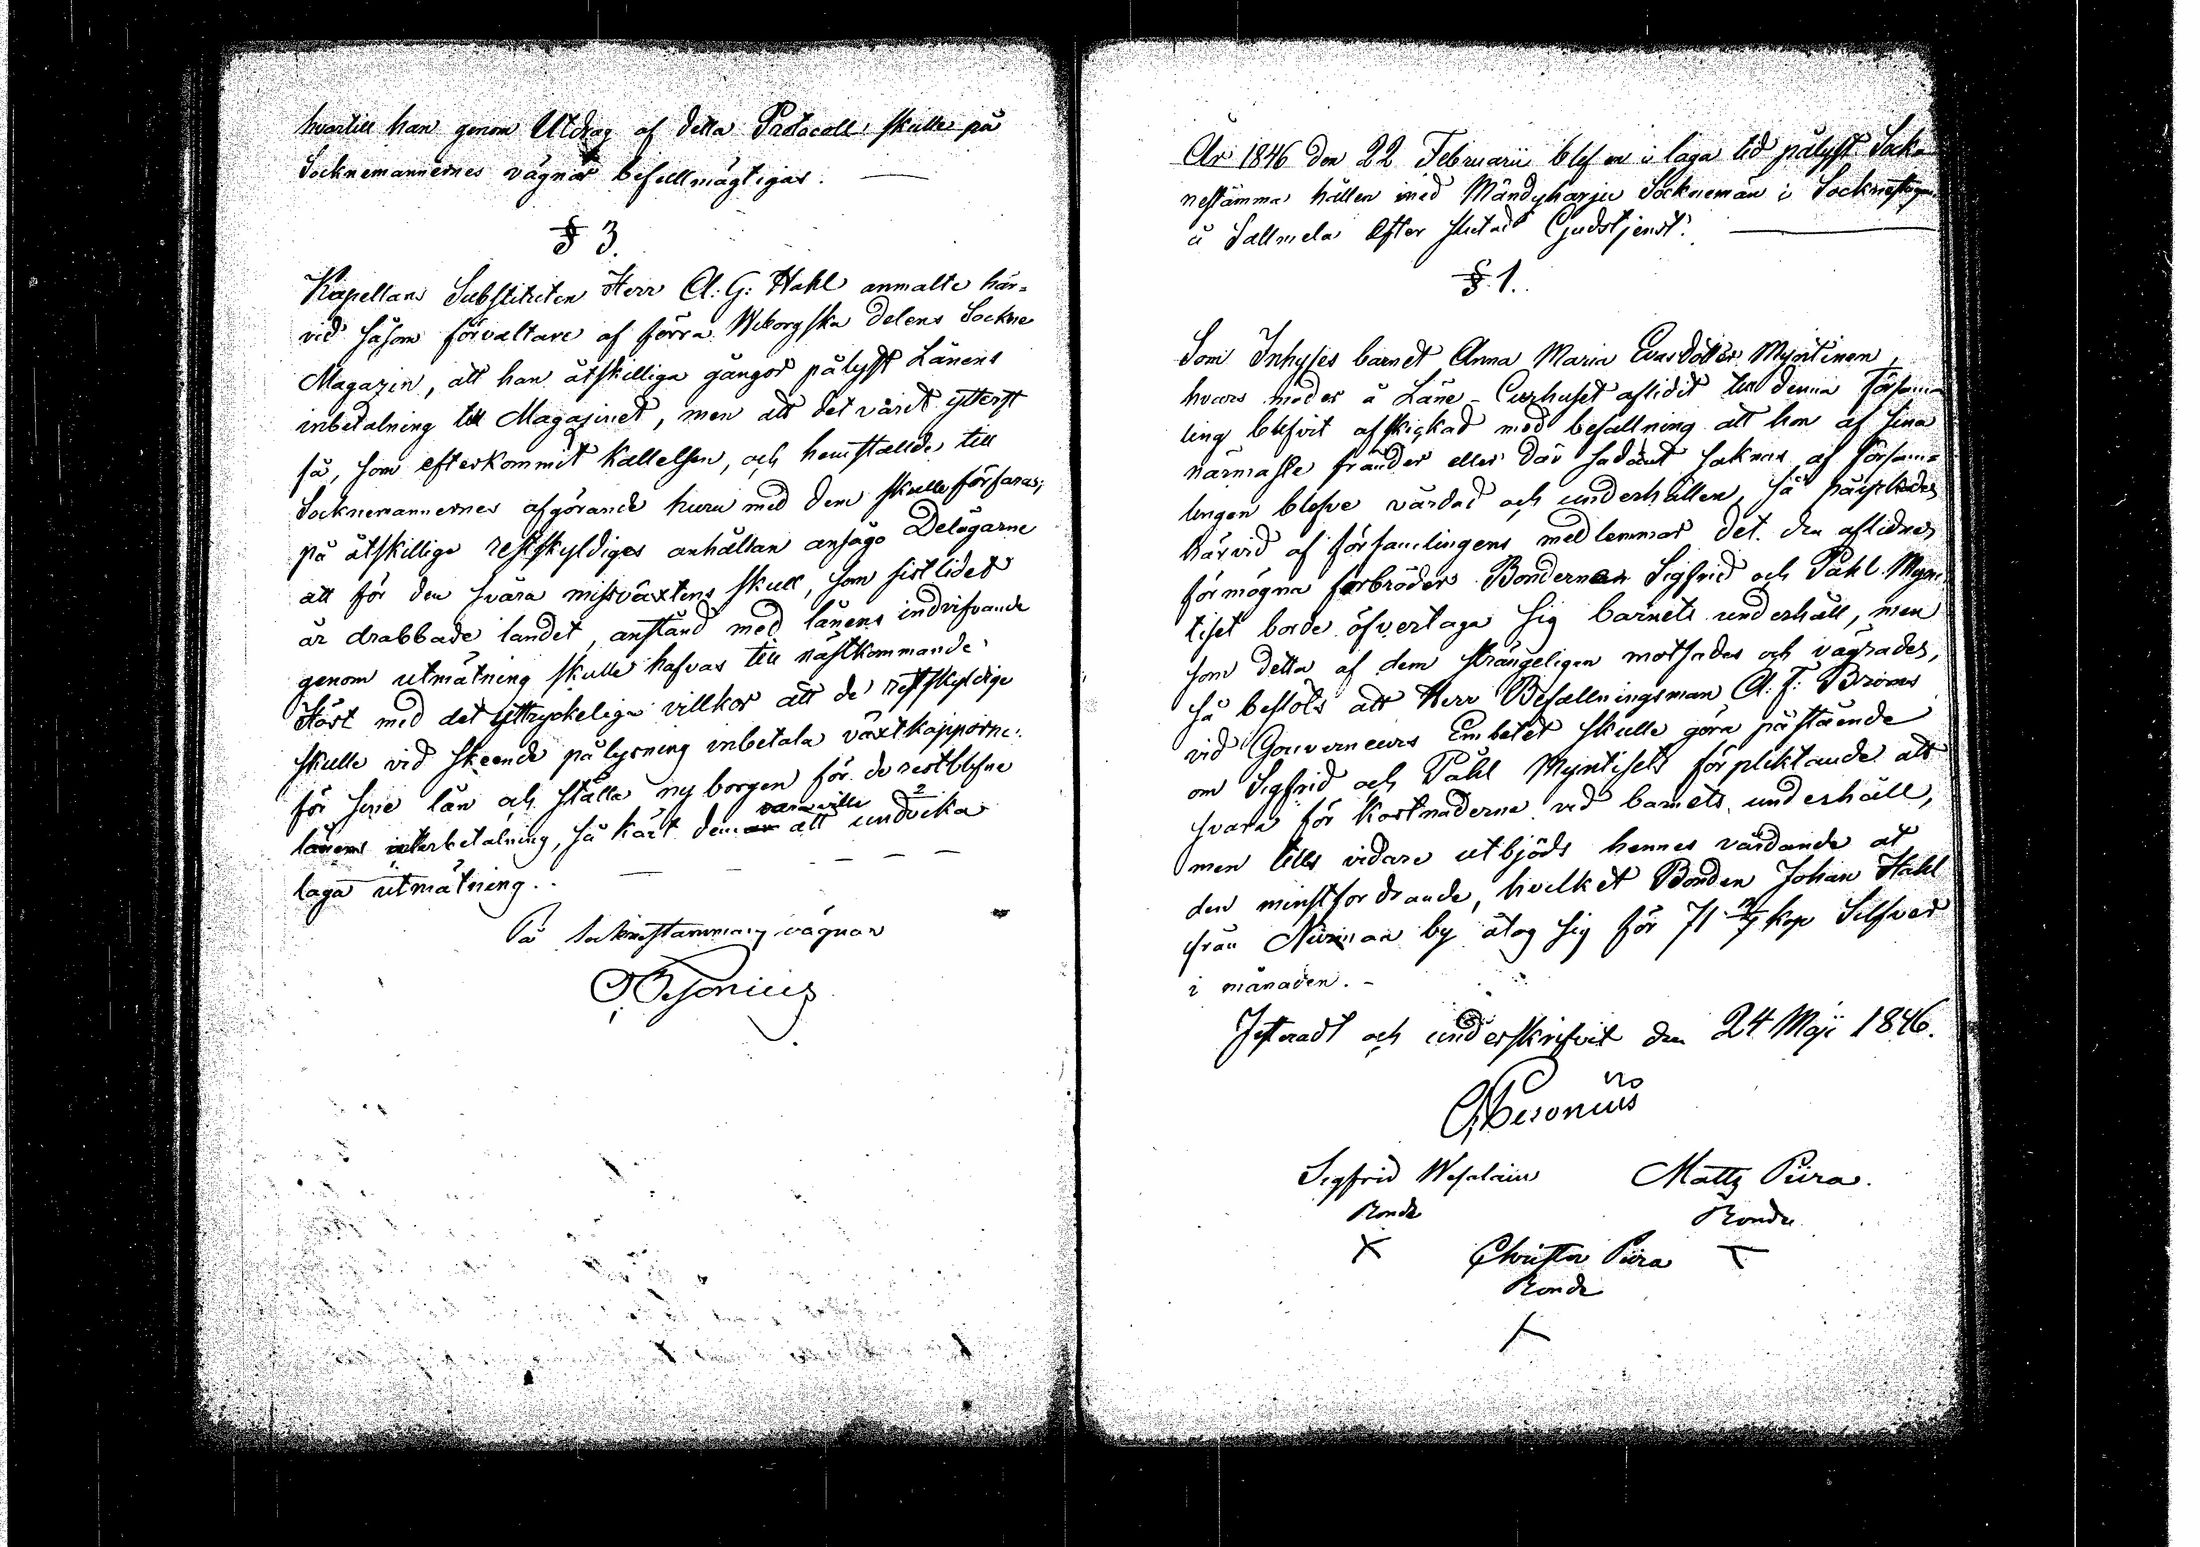 hvartill han genom Utdrag af detta Protocoll skulle på
Socknemannernes vägnar befullmägtigas.
§ 3.
Kapellans Substituten Herr A: G: Hahl anmälte här-
vid såsom förvaltare af förra Wiborgska delens Sockne
Magazin, att han åtskilliga gångor pålyst Lånens
inbetalning till Magazinet, men att det varit ytterst
få, som efterkommit kallelsen, och hemstälde till
Socknemannernes afgörande huru med dem skulle förfaras;
på åtskillige restskyldiges anhållan ansågo Delägarne
att för den svåra missväxtens skull, som sistlidet
år drabbade landet, anstånd med lånens indrifvande
genom utmätning skulle hafvas till nästkommande
Höst med det yttryckeliga villkor att de restskyldige
skulle vid skeende pålysning inbetala växtkapporne
för sine lån och ställa ny borgen för de restblefne
lånens återbetalning, så kärt dem vara ville att undvika
laga utmätning.
På Socknestämmans vägnar
Sig: 
År 1846 den 22 Februarii blef en i laga tid pålyst Sock-
nestämma hållen med Mändyharju Socknemän i Socknestugan
å Sallmela efter slutad Gudstjenst.
§ 1.
Som Inhyses barnet Anna Maria Evasdotter Myntinen,
hvars moder å Läne-Curhuset aflidit till denna Försam-
ling blifvit afskickad med befallning att hon af sina
närmaste fränder eller där sådant saknas af försam-
lingen blefve vårdad och underhållen, så påyrkades
härvid af församlingens medlemmar det den aflidnes
förmögna farbröder Bönderna Sigfrid och Påhl Myn-
tiset borde öfvertaga sig barnets underhåll, men
som detta af dem strängeligen motsades och vägrades,
så beslöts att Herr Befallningsman A. F. Brones
vid Gouverneurs Embetet skulle göra påstående
om Sigfrid och Påhl Myntisets förpliktande att
svara för kostnaderne vid barnets underhåll,
men tills vidare utbjöds hennes vårdande åt
den minstfordrande, hvilket Bonden Johan Hahl
från Nurmaa by åtog sig för 71 3/7 kop Silfver
i månaden.
Justeradt och underskrifvit den 24 Maji 1846.
Sigfrid Wesalain
Mattz Piira.
Bonde
Bonde
X
Christer Piira
X
Bonde
X